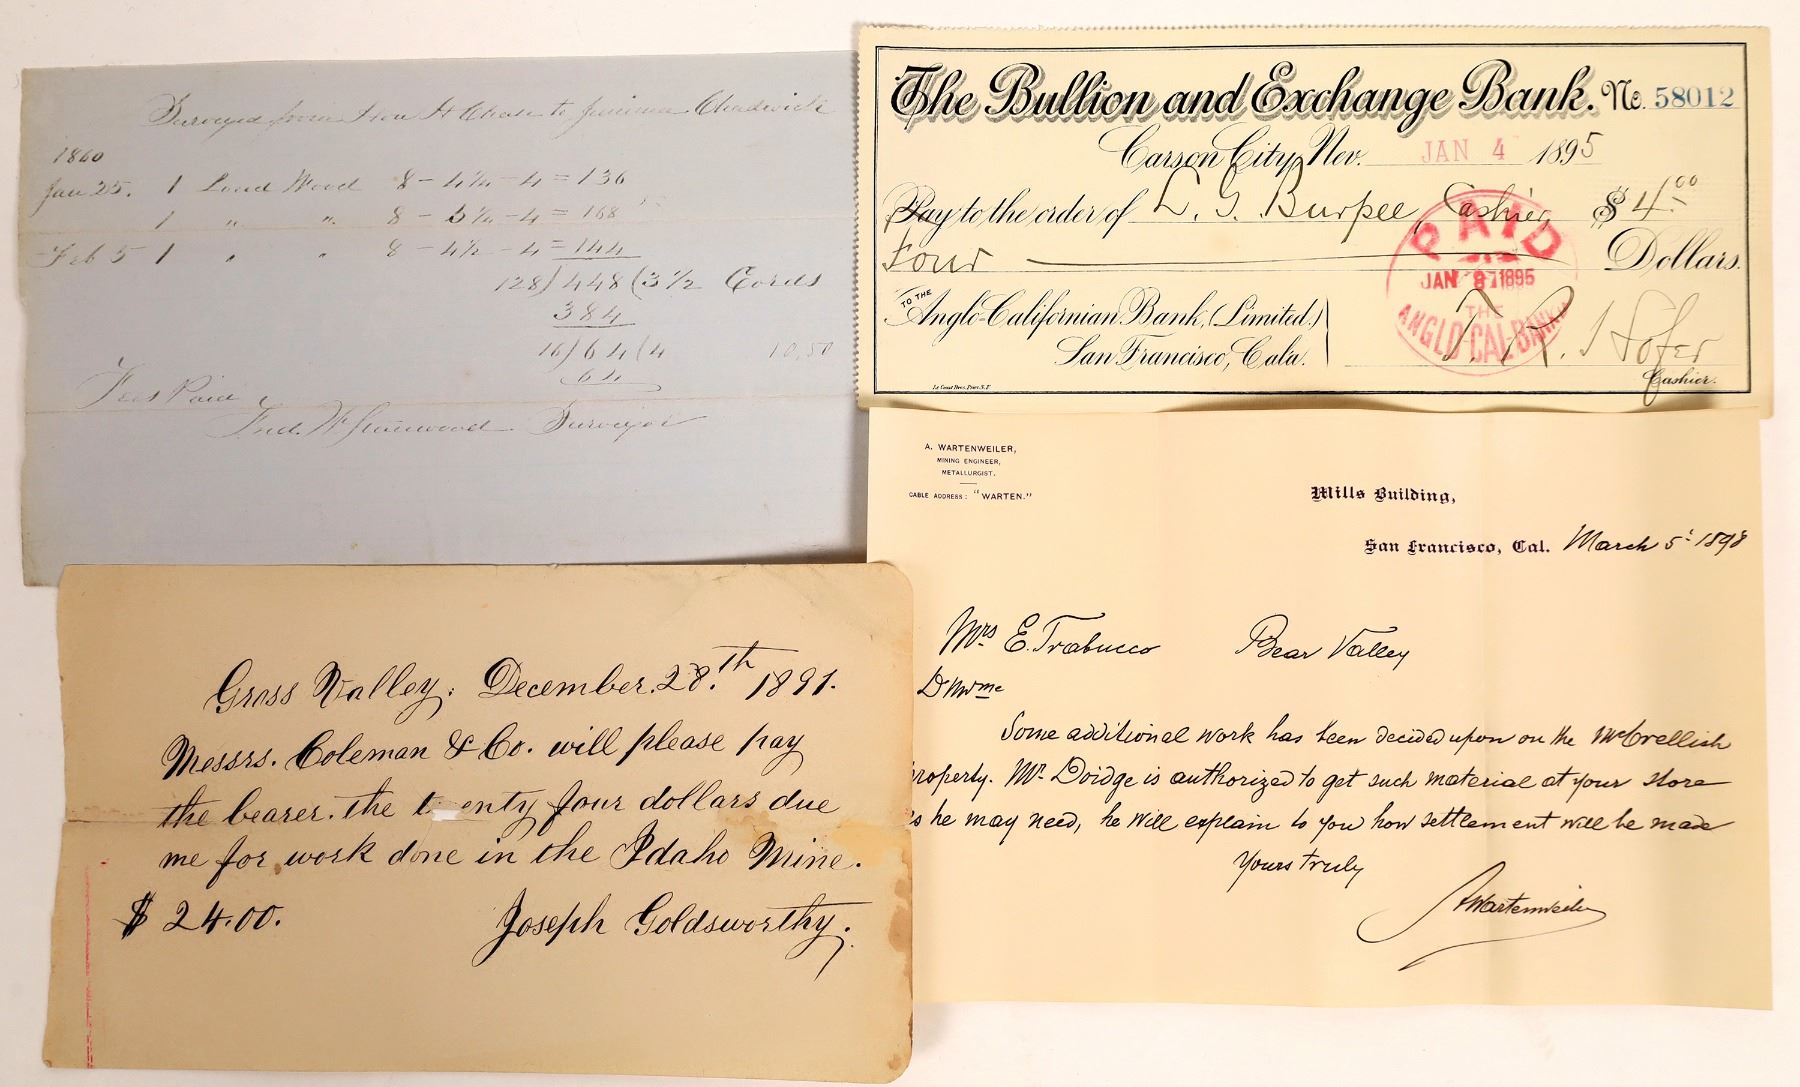 Surveyed from Hon H Chase to Chadwick
1860
Jan 25. 1 Load Wood 8 - 4 1/4 - 4 = 136
1 " " 8 - 5 1/4 - 4 = 168
Feb 5 1 " " 8 - 4 1/2 - 4 = 144
128) 448 (3 1/2 Cords
384
16) 64 (4 10,50
64
Fees Paid
Fred. W. Stanwood Surveyor
The Bullion and Exchange Bank. No. 58012
Carson City, Nev. JAN 4 1895
Pay to the order of L. G. Burpee, Cashier, $4.00
Four Dollars.
TO THE
Anglo-Californian Bank, (Limited.)
San Francisco, Cala.
T. R. Hofer
Cashier.
PAID
JAN 8 1895
THE
ANGLO-CAL-BANK
A. WARTENWEILER,
MINING ENGINEER,
METALLURGIST.
CABLE ADDRESS: "WARTEN."
Mills Building,
San Francisco, Cal. March 5 1898
Mrs E. Trabucco Bear Valley
Some additional work has been decided upon on the McCrellish
property. Mr Doidge is authorized to get such material at your store
as he may need, he will explain to you how settlement will be made
Yours truly
AWartenweiler
Grass Valley. December. 28.th 1891.
Messrs. Coleman & Co. will please pay
the bearer. the t enty four dollars due
me for work done in the Idaho Mine.
$ 24.00. Joseph Goldsworthy.